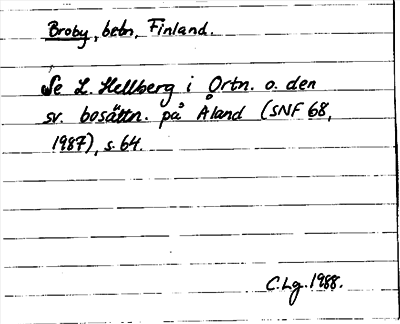 Broby, bebn, Finland.
Se L. Hellberg i Ortn. o. den
sv. bosättn. på Åland (SNF 68,
1987), s. 64.
C. Lg. 1988.